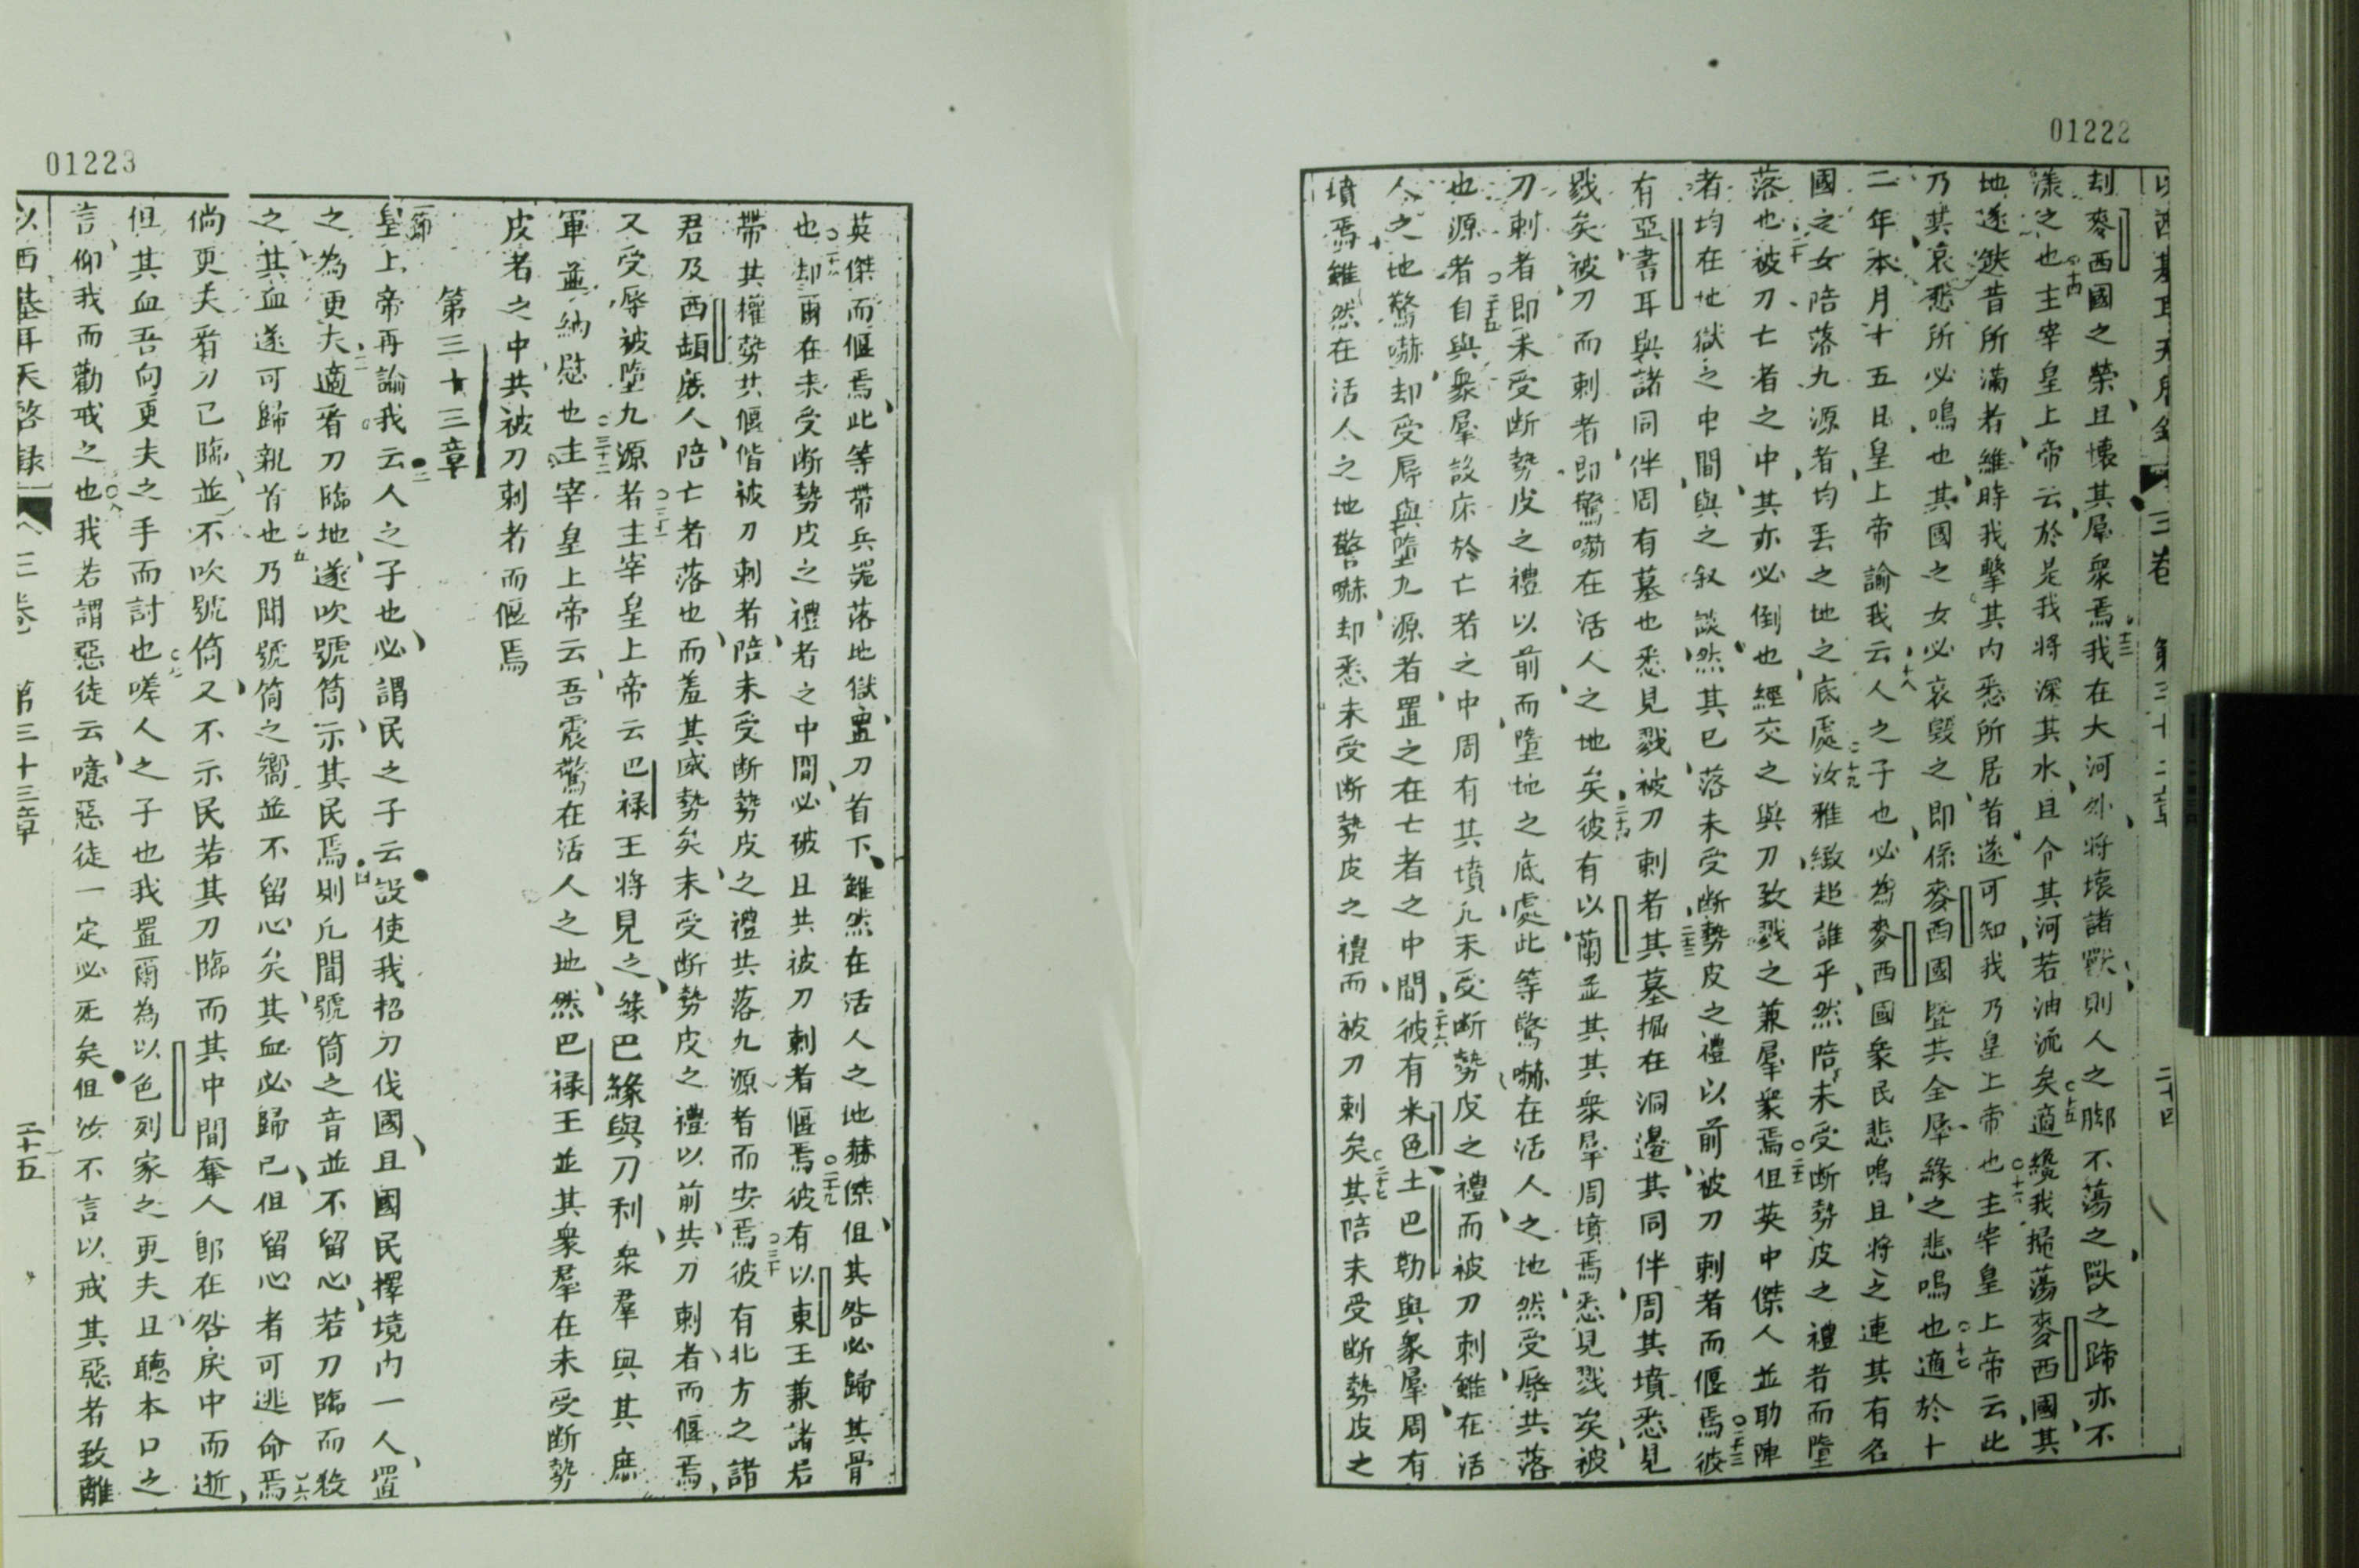 01222
劫麥西國之榮且壞其屢衆焉我在大河外將壞諸獸則人之脚不蕩之獸之蹄亦不
漾之也主宰皇上帝云於是我將深其水且令其河若油流矣適纔我掃蕩麥西國其
地遂缺昔所滿者維時我擊其內悉所居者遂可知我乃皇上帝也主宰皇上帝云此
乃其哀悲所必鳴也其國之女必哀毀之即係麥西國暨共全羣緣之悲鳴也適於十
二年本月十五日皇上帝諭我云人之子也必為麥西國衆民悲鳴且將之連其有名
國之女陪落九源者均丟之地之底處汝雅緻超誰乎然陪未受断勢皮之禮者而墮
落也被刀亡者之中其亦必倒也經交之與刀致戮之兼羣衆焉但英中傑人並助陣
者均在地獄之中間與之叙談然其已落未受断勢皮之禮以前被刀刺者而偃焉彼
有亞書耳與諸同伴周有墓也悉見戮被刀刺者其墓掘在洞邊其同伴周其墳悉見
戮矣被刀而刺者即驚嚇在活人之地矣彼有以蘭並其其衆羣周墳焉悉見戮矣被
刀刺者即未受断勢皮之禮以前而墮地之底處此等驚嚇在活人之地然受辱共落
也源者自與衆羣設床於亡者之中周有其墳凡未受断勢皮之禮而被刀刺雖在活
人之地驚嚇却受辱與墮九源者置之在亡者之中間彼有米色土巴勒與衆羣周有
墳焉雖然在活人之地警嚇却悉未受断勢皮之禮而被刀刺矣其陪未受断勢皮之
01223
英傑而偃焉此等帶兵噐落地獄置刀首下雖然在活人之地赫傑但其咎必歸其骨
也却爾在未受断勢皮之禮者之中間必破且共被刀刺者偃焉彼有以東王兼諸君
帶其權勢共偃偕被刀刺者陪未受断勢皮之禮共落九源者而安焉彼有北方之諸
君及西頓族人陪亡者落也而羞其威勢矣未受断勢皮之禮以前共刀刺者而偃焉
又受辱被墮九源者主宰皇上帝云巴禄王將見之緣巴緣與刀利衆羣與其庶
軍並納慰也主宰皇上帝云吾震驚在活人之地然巴禄王並其衆羣在未受断勢
皮者之中共被刀刺者而偃焉
第三十三章
皇上帝再諭我云人之子也必謂民之子云設使我招刀伐國且國民擇境內一人置
之為更夫適看刀臨地遂吹號筒示其民焉則凡聞號筒之音並不留心若刀臨而殺
之其血遂可歸親首也乃聞號筒之嚮並不留心矣其血必歸已但留心者可逃命焉
倘更夫看刀已臨並不吹號倘又不示民若其刀臨而其中間奪人郎在咎戾中而逝
但其血吾向更夫之手而討也嗟人之子也我置爾為以色列家之更夫且聽本口之
言仰我而勸戒之也我若謂惡徒云噫惡徒一定必死矣但汝不言以戒其惡者致離
以西基耳天啓錄 三卷 第三十三章 二十五